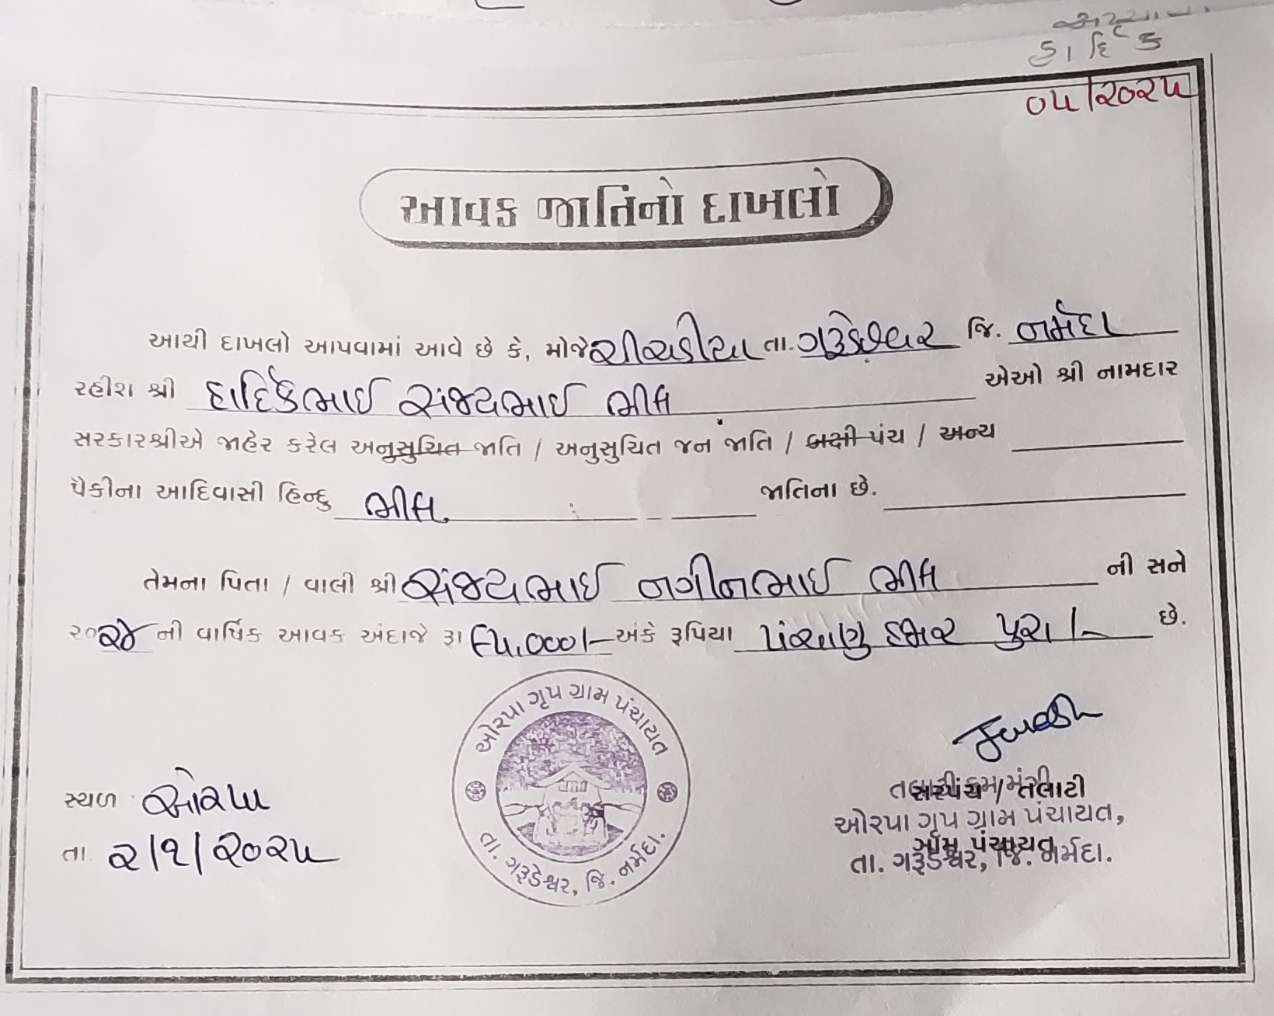 હાર્દિક
૦૫/૨૦૨૫
આવક જાતિનો દાખલો
આથી દાખલો આપવામાં આવે છે કે, મોજે તા. ગરૂડેશ્વર જિ. નર્મદા
રહીશ શ્રી હાર્દિકભાઈ સંજયભાઈ ભીલ એઓ શ્રી નામદાર
સરકારશ્રીએ જાહેર કરેલ અનુસુચિત જાતિ / અનુસુચિત જન જાતિ / બક્ષી પંચ / અન્ય
પૈકીના આદિવાસી હિન્દુ ભીલ. જાતિના છે.
તેમના પિતા / વાલી શ્રી સંજયભાઈ નગીનભાઈ ભીલ ની સને
૨૦૨૪ ની વાર્ષિક આવક અંદાજે રૂા ૯૫,૦૦૦/- અંકે રૂપિયા પંચાણુ હજાર પુરા/- છે.
ઓરપા ગૃપ ગ્રામ પંચાયત
તા. ગરૂડેશ્વર, જિ. નર્મદા.
સ્થળ ઓરપા
તા. ૨/૧/૨૦૨૫
તલાટી કમ મંત્રી
સરપંચ / તલાટી
ઓરપા ગૃપ ગ્રામ પંચાયત,
ગ્રામ પંચાયત
તા. ગરૂડેશ્વર, જિ. નર્મદા.